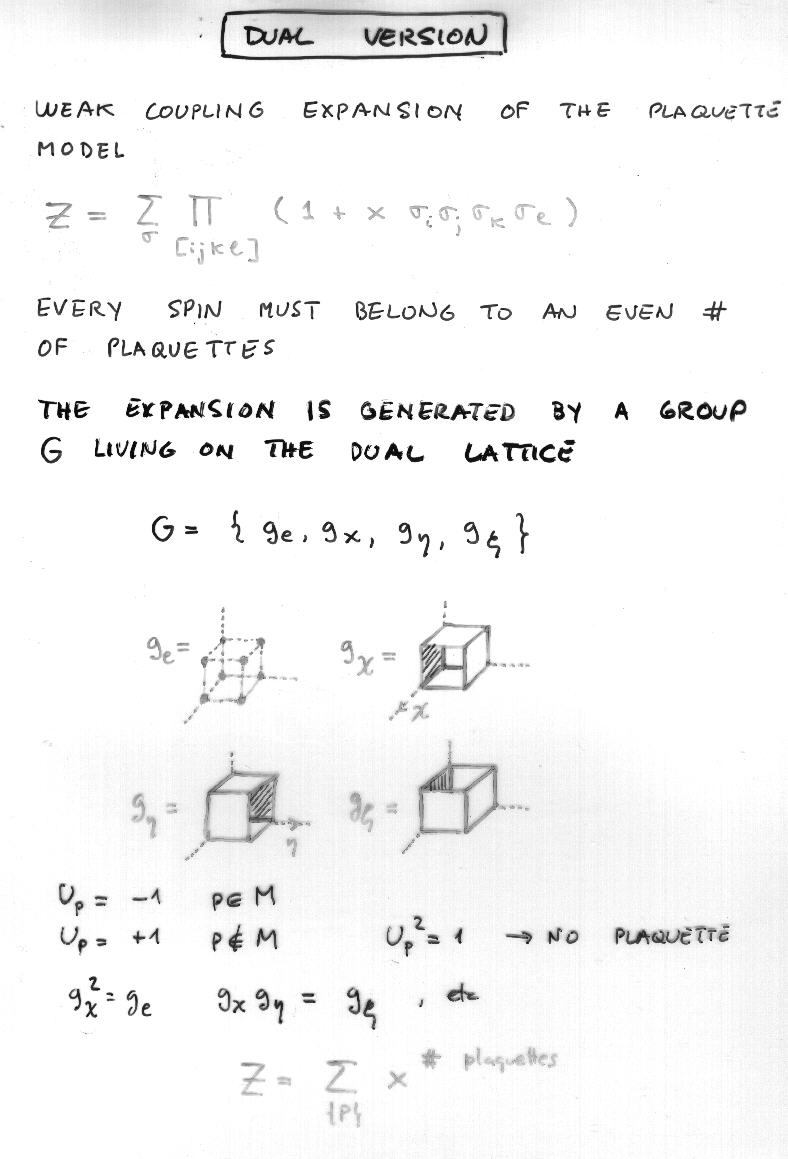 DUAL VERSION
WEAK COUPLING EXPANSION OF THE PLAQUETTE
MODEL
Z = Σ Π (1 + x σi σj σk σl)
σ [ijkl]
EVERY SPIN MUST BELONG TO AN EVEN #
OF PLAQUETTES
THE EXPANSION IS GENERATED BY A GROUP
G LIVING ON THE DUAL LATTICE
G = { ge, gχ, gη, gξ }
ge = gχ =
χ
gη = gξ =
η
Up = -1 p∈M
Up = +1 p∉M Up² = 1 → NO PLAQUETTE
gχ² = ge gχ gη = gξ , etc
Z = Σ x # plaquettes
{P}